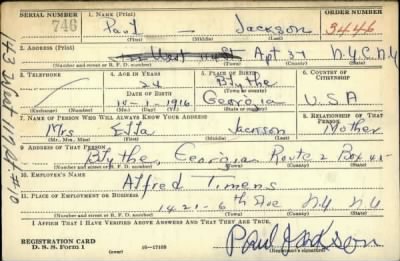 SERIAL NUMBER 1. NAME (Print) ORDER NUMBER
746 Paul — Jackson 3446
(First) (Middle) (Last)
2. ADDRESS (Print)
Apt 37 N.Y.C. N.Y.
(Number and street or R. F. D. number) (Town) (County) (State)
143 West 117 St #10
3. TELEPHONE 4. AGE IN YEARS 5. PLACE OF BIRTH 6. COUNTRY OF CITIZENSHIP
24 Blythe
DATE OF BIRTH (Town or county)
10-1-1916 Georgia U.S.A
(Exchange) (Number) (Mo.) (Day) (Yr.) (State or country)
7. NAME OF PERSON WHO WILL ALWAYS KNOW YOUR ADDRESS 8. RELATIONSHIP OF THAT PERSON
Mrs Etta Jackson Mother
(Mr., Mrs., Miss) (First) (Middle) (Last)
9. ADDRESS OF THAT PERSON
Blythe, Georgia Route 2 Box
(Number and street or R. F. D. number) (Town) (County) (State)
10. EMPLOYER'S NAME
Alfred Timens
11. PLACE OF EMPLOYMENT OR BUSINESS
1421-6th Ave N.Y. N.Y.
(Number and street or R. F. D. number) (Town) (County) (State)
I AFFIRM THAT I HAVE VERIFIED ABOVE ANSWERS AND THAT THEY ARE TRUE.
REGISTRATION CARD
D. S. S. Form 1 (over) 16—17105
Paul Jackson
(Registrant's signature)